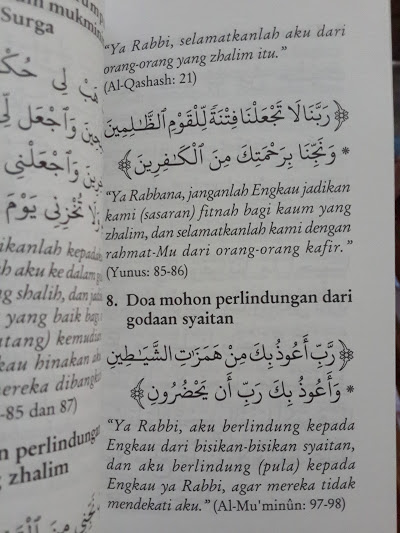 mukmin
Surga
هَبْ لِي حُكْ
وَاجْعَل لِّي
وَاجْعَلْنِي
وَلَا تُخْزِنِي يَوْمَ
kanlah kepada
h aku ke dalam
g shalih, dan
yang baik bagi
tang) kemudian
kau hinakan
mereka dibangkit
-85 dan 87)
n perlindungan
g zhalim
"Ya Rabbi, selamatkanlah aku dari
orang-orang yang zhalim itu."
(Al-Qashash: 21)
﴿ رَبَّنَا لَا تَجْعَلْنَا فِتْنَةً لِّلْقَوْمِ الظَّالِمِينَ
* وَنَجِّنَا بِرَحْمَتِكَ مِنَ الْكَافِرِينَ ﴾
"Ya Rabbana, janganlah Engkau jadikan
kami (sasaran) fitnah bagi kaum yang
zhalim, dan selamatkanlah kami dengan
rahmat-Mu dari orang-orang kafir."
(Yunus: 85-86)
8. Doa mohon perlindungan dari
godaan syaitan
﴿ رَّبِّ أَعُوذُ بِكَ مِنْ هَمَزَاتِ الشَّيَاطِينِ
* وَأَعُوذُ بِكَ رَبِّ أَن يَحْضُرُونِ ﴾
"Ya Rabbi, aku berlindung kepada
Engkau dari bisikan-bisikan syaitan,
dan aku berlindung (pula) kepada
Engkau ya Rabbi, agar mereka tidak
mendekati aku." (Al-Mu'minûn: 97-98)